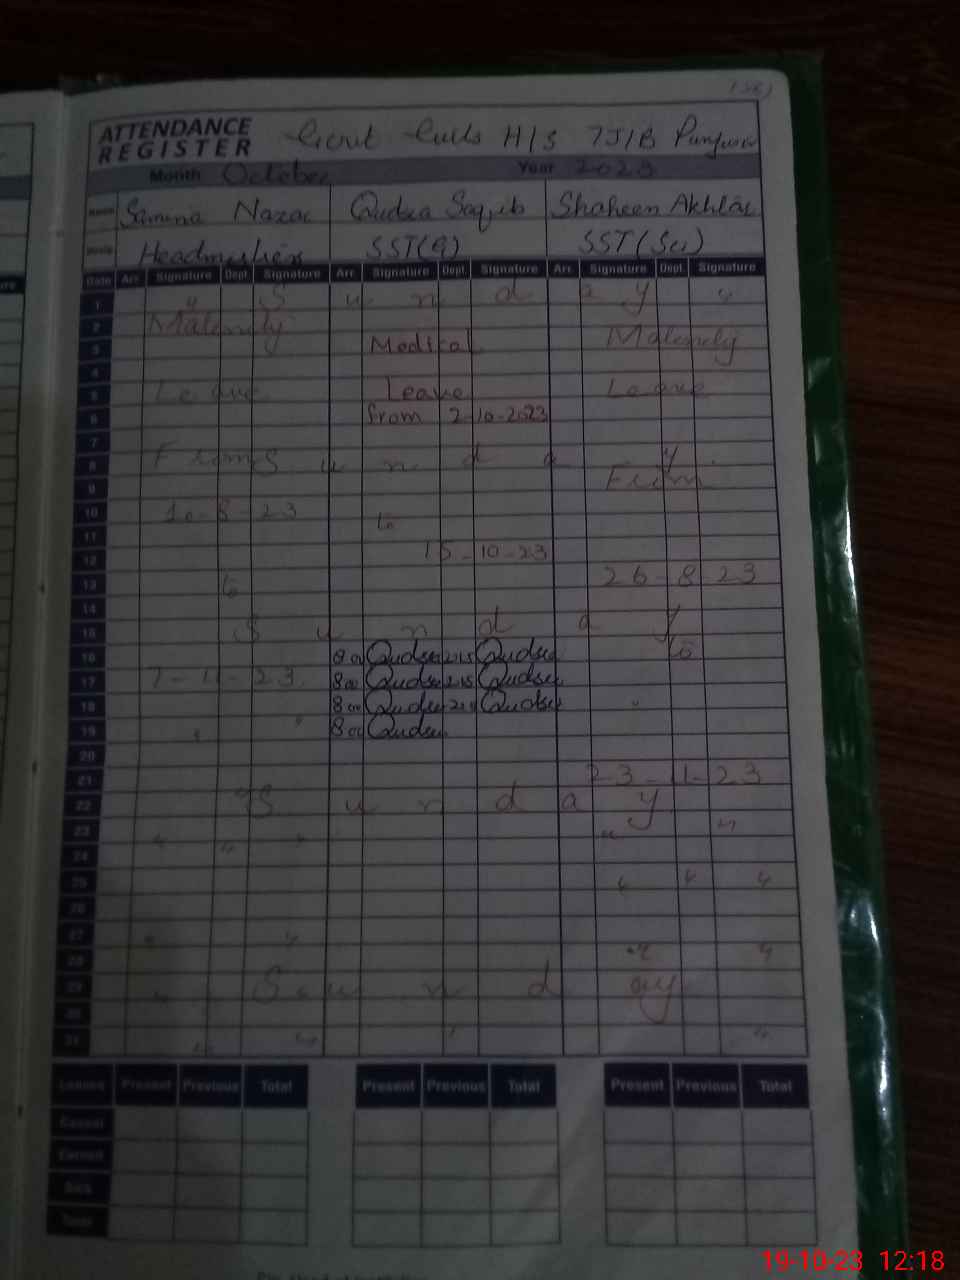 ATTENDANCE
REGISTER
Govt Girls H/S 7J/B Punjwar
Month October Year 2023
Name Samina Nazar Qudsia Saqib Shaheen Akhtar
Headmistress SST(G) SST(Sci)
Date Arr. Signature Dept. Signature Arr. Signature Dept. Signature Arr. Signature Dept. Signature
1 S u n d a y
2 Maternity
3 Medical Maternity
4
5 Leave Leave Leave
6 from 2-10-2023
7
8 From S u n d a y
9 From
10 10-8-23 to
11
12 15-10-23
13 to 26-8-23
14
15 S u n d a y
16 8 00 Qudsia 215 Qudsia to
17 7-11-23 8 00 Qudsia 215 Qudsia
18 8 00 Qudsia Qudsia
19 8 00 Qudsia
20
21 23-11-23
22 S u n d a y
23
24
25
26
27
28
29 S u n d ay
30
31
Leaves Present Previous Total Present Previous Total Present Previous Total
Casual
Earned
Sick
Total
19-10-23 12:18